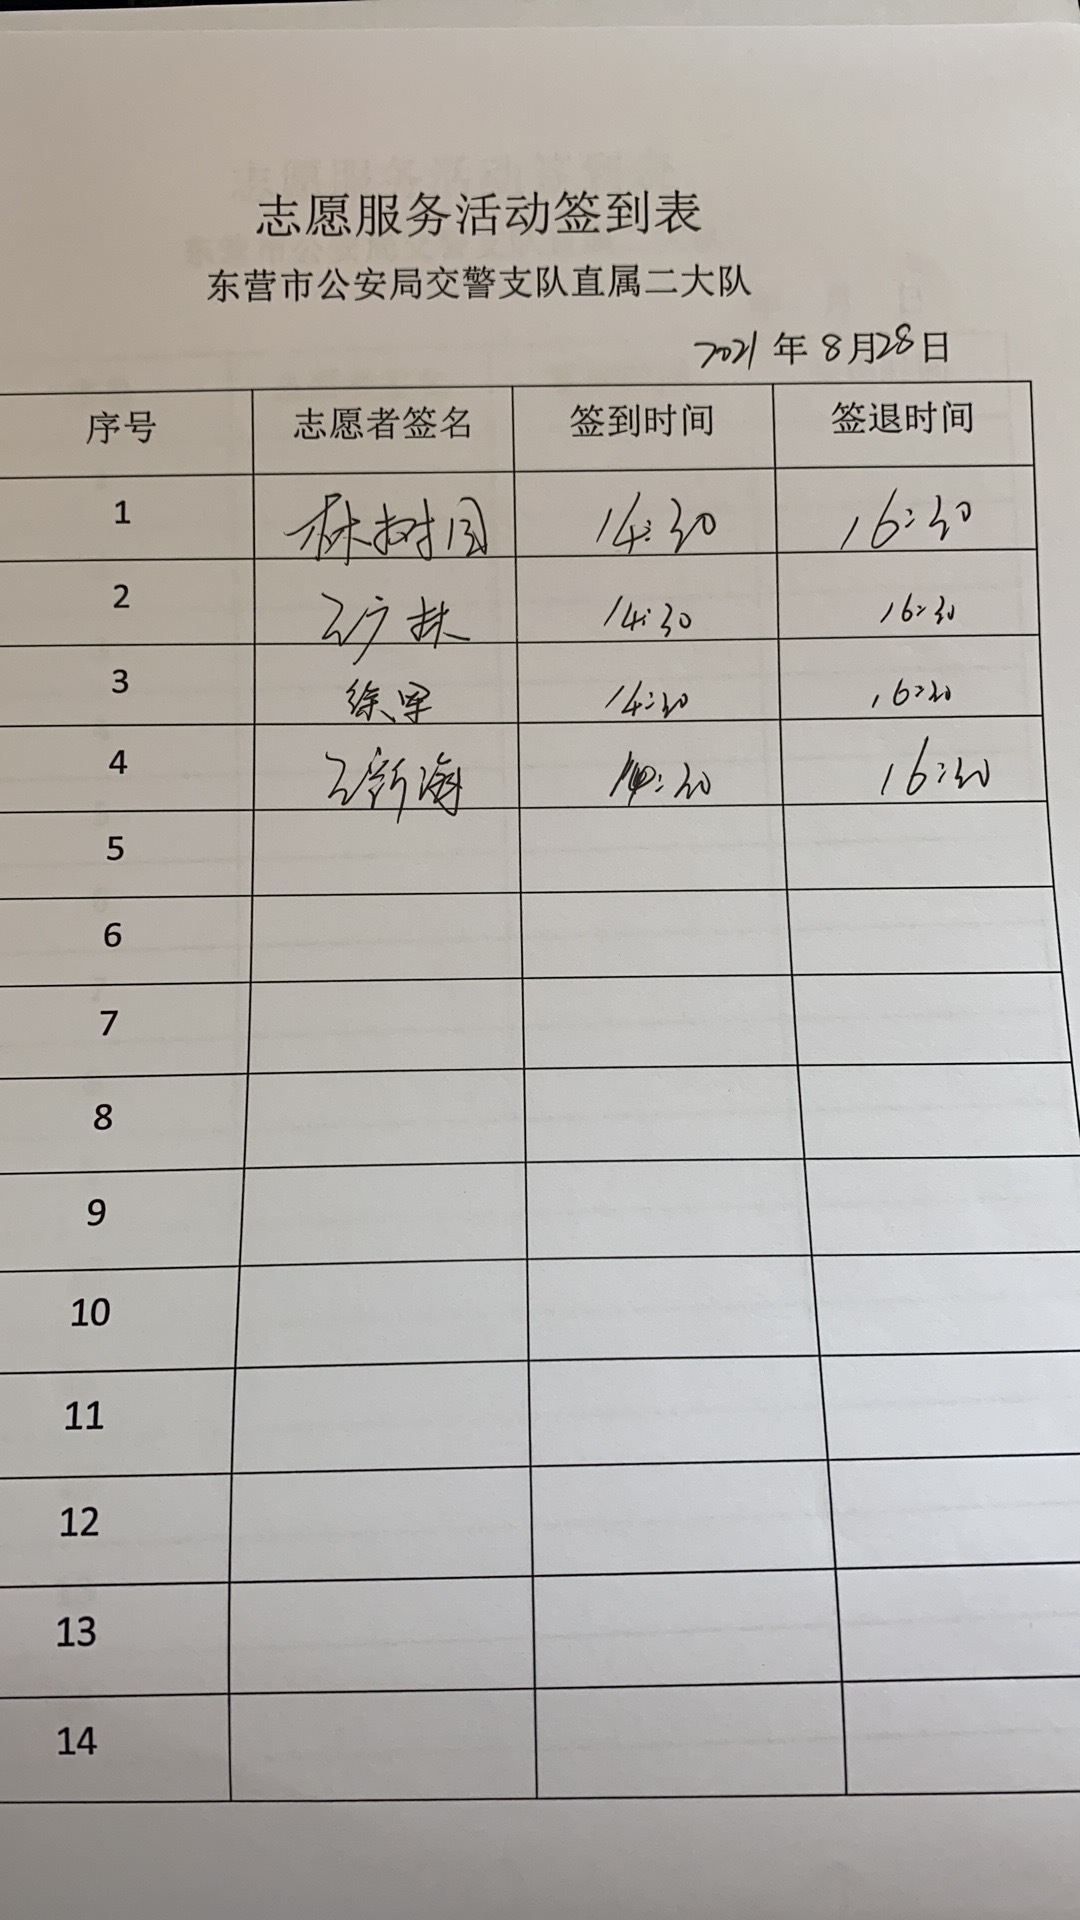 志愿服务活动签到表
东营市公安局交警支队直属二大队
2021年8月28日
序号 志愿者签名 签到时间 签退时间
1 林树国 14:30 16:30
2 王广林 14:30 16:30
3 徐军 14:30 16:30
4 王新海 14:30 16:30
5
6
7
8
9
10
11
12
13
14